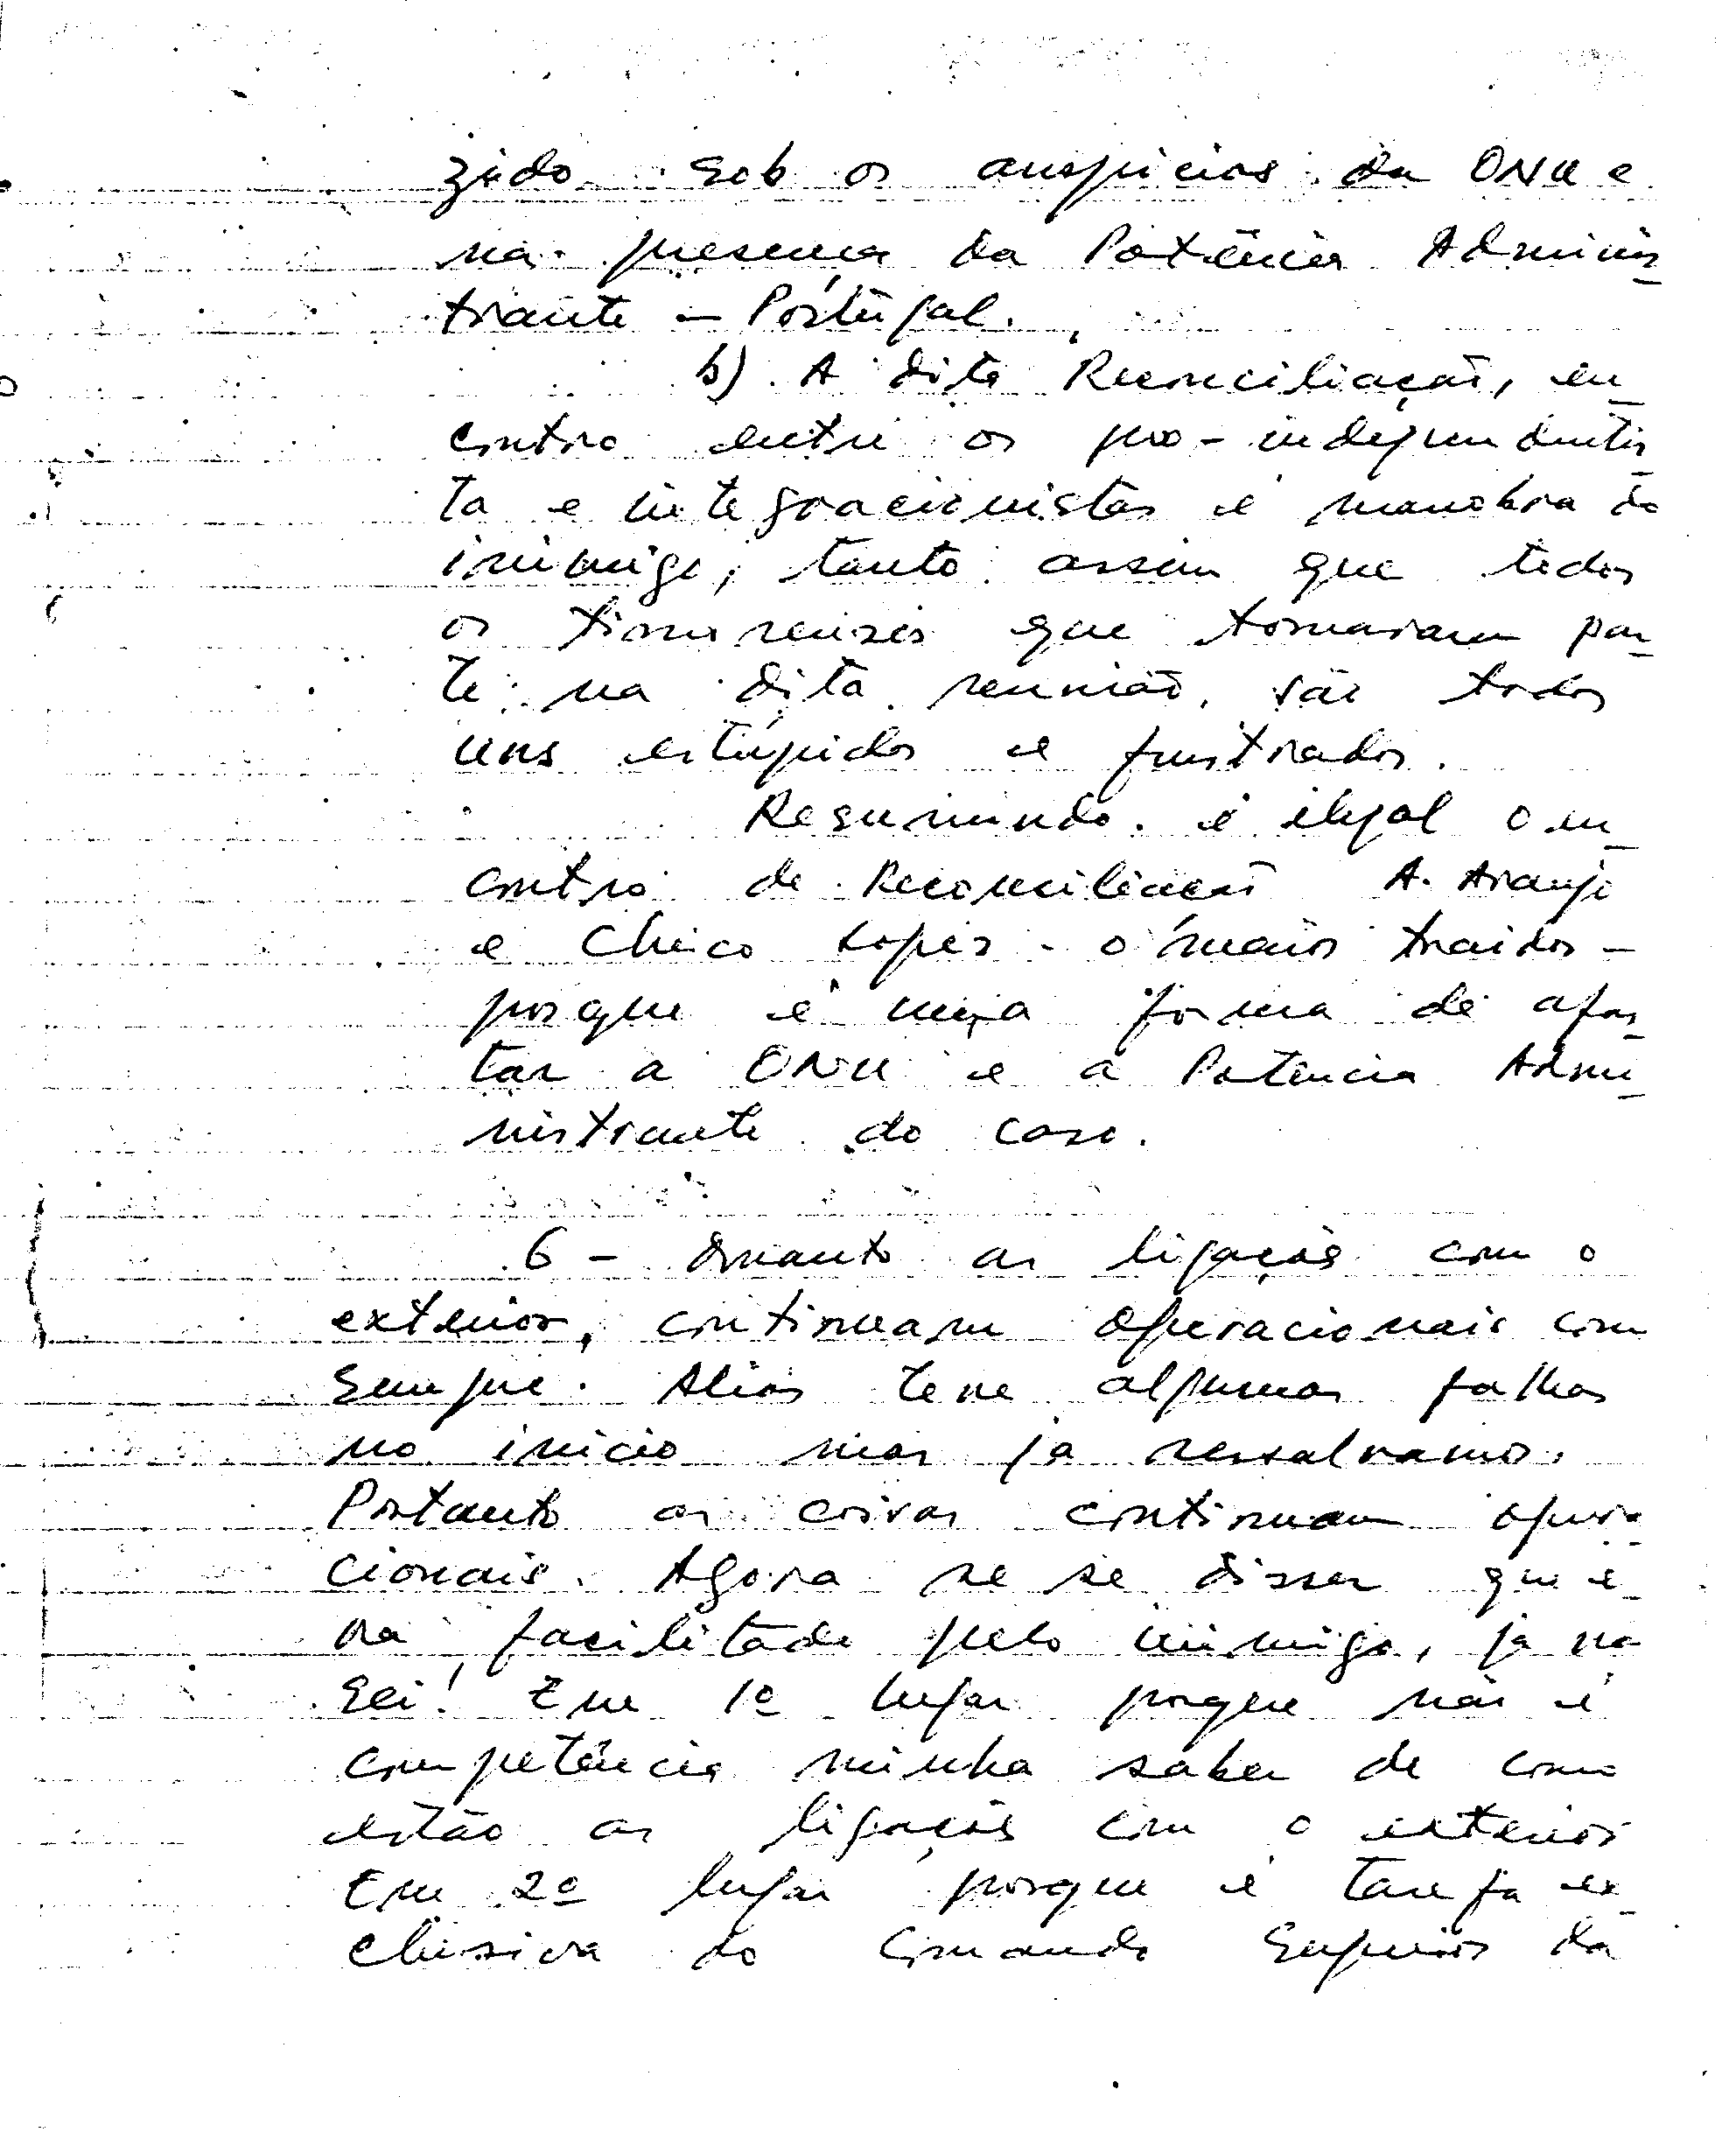 zado sob os auspícios da ONU e
na presença da Potência Adminis_
trante - Portugal.
b) A dita Reconciliação, en_
contro entre os pro-independentis_
ta e integracionistas é manobra do
inimigo, tanto assim que todos
os timorenses que tomaram par_
te na dita reunião, são todos
uns estúpidos e frustrados.
Resumindo. é ilegal o en_
contro de Reconciliação A. Araujo
e Chico Lopes - o maior traidor -
porque é uma forma de afas_
tar a ONU e a Potencia Admi_
nistrante do caso.
6 - Quanto as ligações com o
exterior, continuam operacionais com
sempre. Alias teve algumas falhas
no inicio mas já ressalvamos.
Portanto as coisas continuam opera_
cionais. Agora se se disser que e_
ra facilitado pelo inimigo, já na
sei! Em 1º lugar porque não é
competência minha saber de como
estão as ligações com o exterior
Em 2º lugar porque é tarefa ex_
clusiva do Comando Superior da